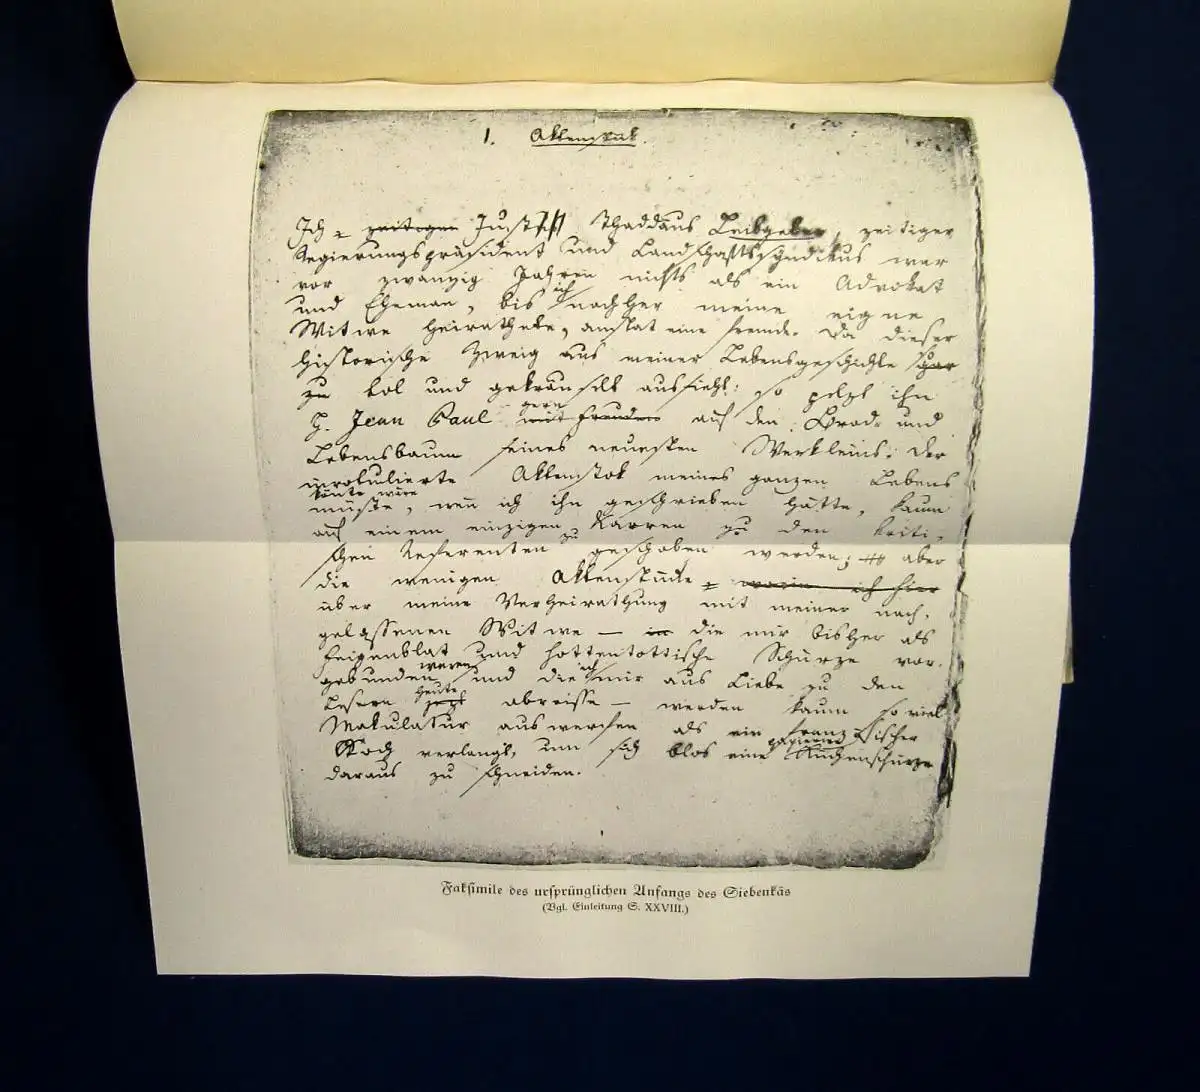 1. Aktenstük.
Ich = zeitigen Justiz Thaddäus Leibgeber, zeitiger
Regierungspräsident und Landschaftssyndikus war
vor zwanzig Jahren nichts als ein Advokat
und Eheman, bis ich nachher meine eigne
Witwe heirathete, anstat eine fremde. Da dieser
historische Zweig aus meiner Lebensgeschichte gar
zu kol und gekräuselt aussieht: so pelzt ihn
H. Jean Paul gern mit Freuden auf den Brod- und
Lebensbaum seines neuesten Werkleins. Der
involulierte Aktenstok meines ganzen Lebens
könte wäre
müste, wen ich ihn geschrieben hätte, kaum
auf einem einzigen Karren zu den kriti-
schen Referenten zu geschoben werden; aber
die wenigen Aktenstücke = worin ich hier
über meine Verheirathung mit meiner nach-
gelassenen Witwe — in die mir bisher als
Feigenblat und hottentottische Schürze vor-
gebunden waren und die ich mir aus Liebe zu den
Lesern heute jezt abreisse — werden kaum so viel
Makulatur auswerfen als ein französischer
Koch verlangt, um sich blos eine papierne Küchenschürze
daraus zu schneiden.
Faksimile des ursprünglichen Anfangs des Siebenkäs
(Vgl. Einleitung S. XXVIII.)